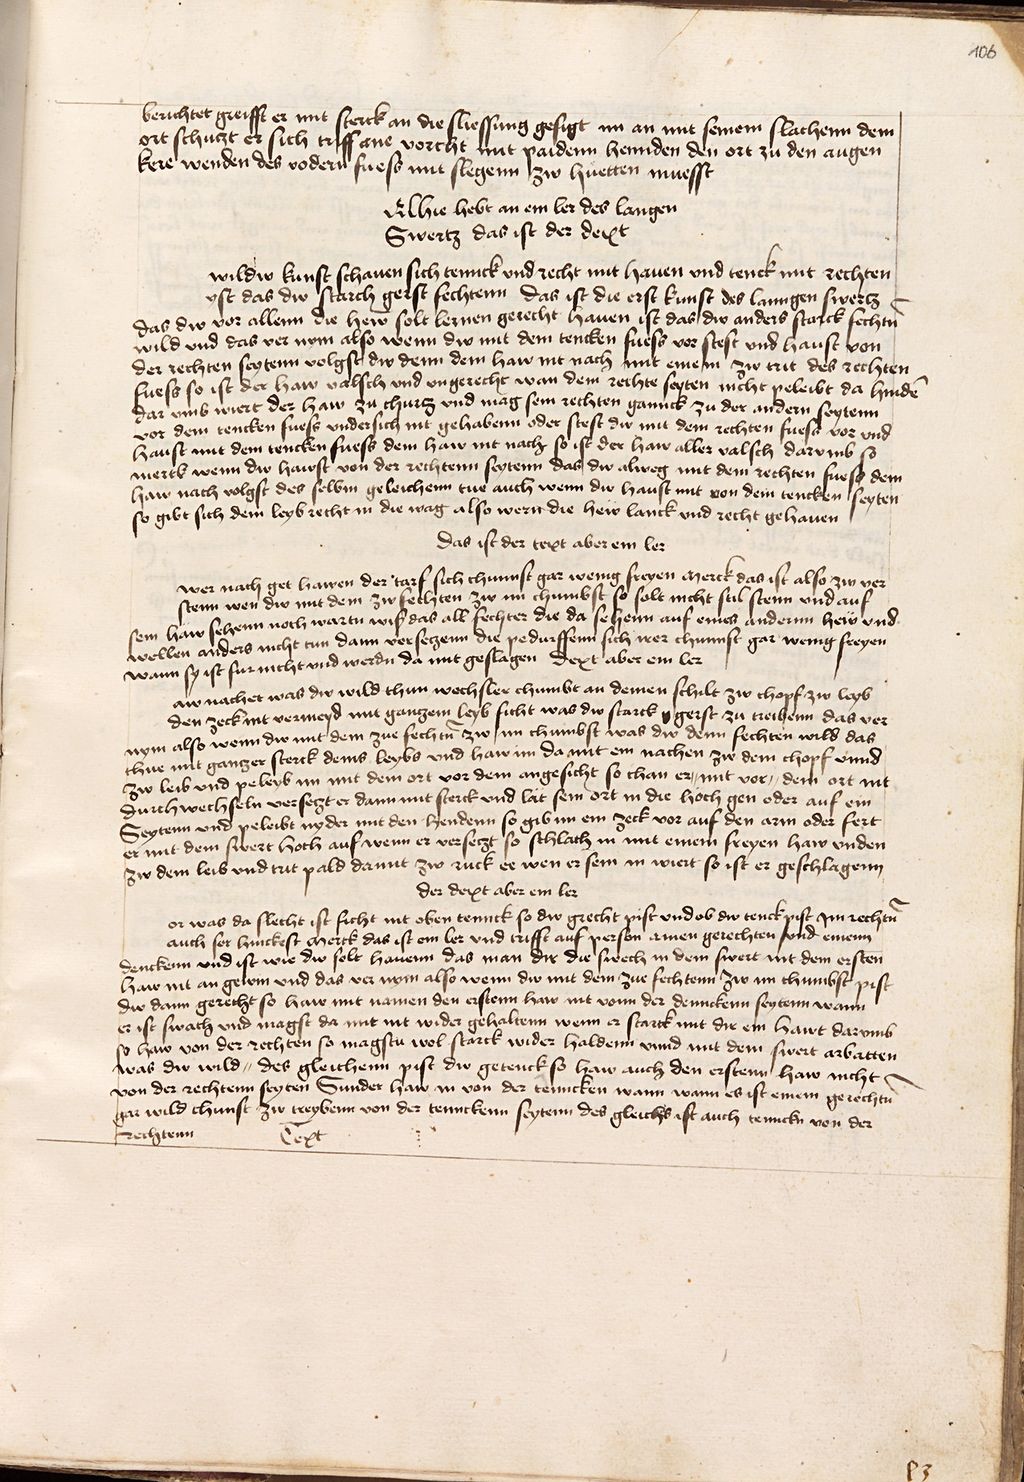 106
berichtet greifft er mit sterck an die sliessung gesigt im an mit seinem slachenn dem
ort schuczt er sich triff ane vorcht mit paidenn hennden den ort zu den augen
kere wenden des vodern fuess mit slegenn zw huetten muesst
Alhie hebt an ein ler des langen
Swertz das ist der dext
wildw kunst schauen sich tennck vnd recht mit hauen vnd tenck mit rechten
yst das dw starch gerst fechtenn Das ist die erst kunst des lanngen swertz
das dw vor allenn die hew solt lernen gerecht hauen ist das dw anders starck fechtn
wild vnd das ver nym also wenn dw mit dem tencken fuess vor stest vnd haust von
der rechten seytenn volgst dw denn dem haw nit nach mit einem zw trit des rechten
fuess so ist der haw valsch vnd vngerecht wan dein rechte seyten nicht peleibt da hinden
dar vmb wiert der haw zu churtz vnd mag sein rechten ganck zu der andern seytenn
vor dem tencken fuess vndersich nit gehabenn oder stest dw mit dem rechten fuess vor vnd
haust mit dem tencken fuess dem haw nit nach so ist der haw aller valsch dar vmb so
merck wenn dw hawst von der rechtenn seytenn das dw alweg mit dem rechten fuess dem
haw nach volgst des selbin geleichenn tue auch wenn dw haust mit von dem tencken seyten
so gibt sich dein leyb recht in die wag also wern die hew lanck vnd recht gehauen
Das ist der text aber ein ler
wer nach get hawen der tarf sich chunst gar wenig freyen Merck das ist also zw ver
stenn wen dw mit dem zw fechten zw im chumbst so solt nicht stil stenn vnd auf
sein haw sehenn noch wartn wiss das all fechter die da sehenn auf eines anderm hew vnd
wellen anders nicht tun dann versetzenn die pedurffenn sich irer chunst gar wenig freyen
wann sy ist fur nicht vnd werdn da mit geslagen Dext aber ein ler
aw nachet was dw wild thun wechsler chumbt an deinen schilt zw chopf zw leyb
den zeck nit vermeyd mit gantzem leyb ficht was dw starck gerst zu treibenn das ver
nym also wenn dw mit dem zue fechtn zw im chumbst was dw denn fechten wild das
thue mit gantzer sterck deins leybs vnd haw im da mit ein nachen zw dem chopf vnnd
zw leib vnd peleyb im mit dem ort vor dem angesicht so chan er mit vor dem ort nit
durchwechseln versetzt er dann mit sterck vnd lat sein ort in die hoch gen oder auf ein
Seytenn vnd peleibt nyder mit den hendenn so gib im ein zeck vor auf den arm oder fert
er mit dem swert hoch auf wenn er versetzt so schlach in mit einem freyen haw vnden
zw dem leib vnd trit pald damit zw ruck ee wen er sein in wiert so ist er geschlagenn
der dext aber ein ler
or was da slecht ist ficht nit oben tennck so dw grecht pist vnd ob dw tenck pist Im rechtn
auch ser hinckest Merck das ist ein ler vnd trifft auf person ainen gerechten vnd einenn
denckenn vnd ist wie dw solt hauenn das man dir die swech in dem swert mit dem ersten
haw nit an gewin vnd das ver nym also wenn dw mit dem zue fechtenn zw im chumbst pist
dw dann gerecht so haw mit namen den erstenn haw nit vonn der dennckenn seytenn wann
er ist swach vnd magst da mit nit wider gehaltenn wenn er starck mit dir ein hawt darumb
so haw von der rechten so magstu wol starck wider haldenn vnnd mit dem swert arbatten
was dw wild des gleichenn pist dw getenck so haw auch den erstenn haw nicht
von der rechtenn seyten Sunder haw in von der tenncken wann wann es ist einem gerechtn
gar wild chunst zw treybenn von der tennckenn seytenn des gleichs ist auch tennckn von der
Rechtenn Text